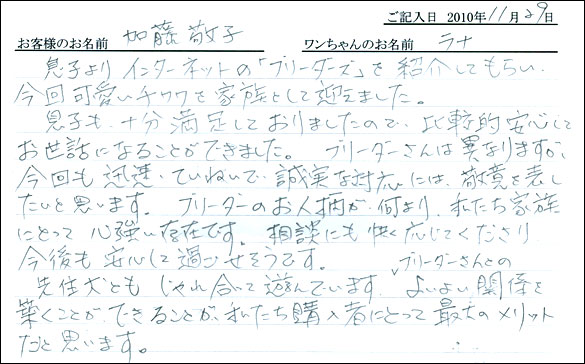 ご記入日 2010年11月29日
お客様のお名前 加藤敬子 ワンちゃんのお名前 ラナ
息子よりインターネットの「ブリーダーズ」を紹介してもらい、
今回可愛いチワワを家族として迎えました。
息子も、十分満足しておりましたので、比較的安心して
お世話になることができました。ブリーダーさんは異なりますが、
今回も迅速、ていねいで、誠実な対応には、敬意を表し
たいと思います。ブリーダーのお人柄が、何より、私たち家族
にとって心強い存在です。相談にも快く応じてくださり
今後も安心して過ごせそうです。
ブリーダーさんとの
先住犬とも じゃれ合って遊んでいます。よいよい関係を
築くことができることが、私たち購入者にとって最大のメリット
だと思います。